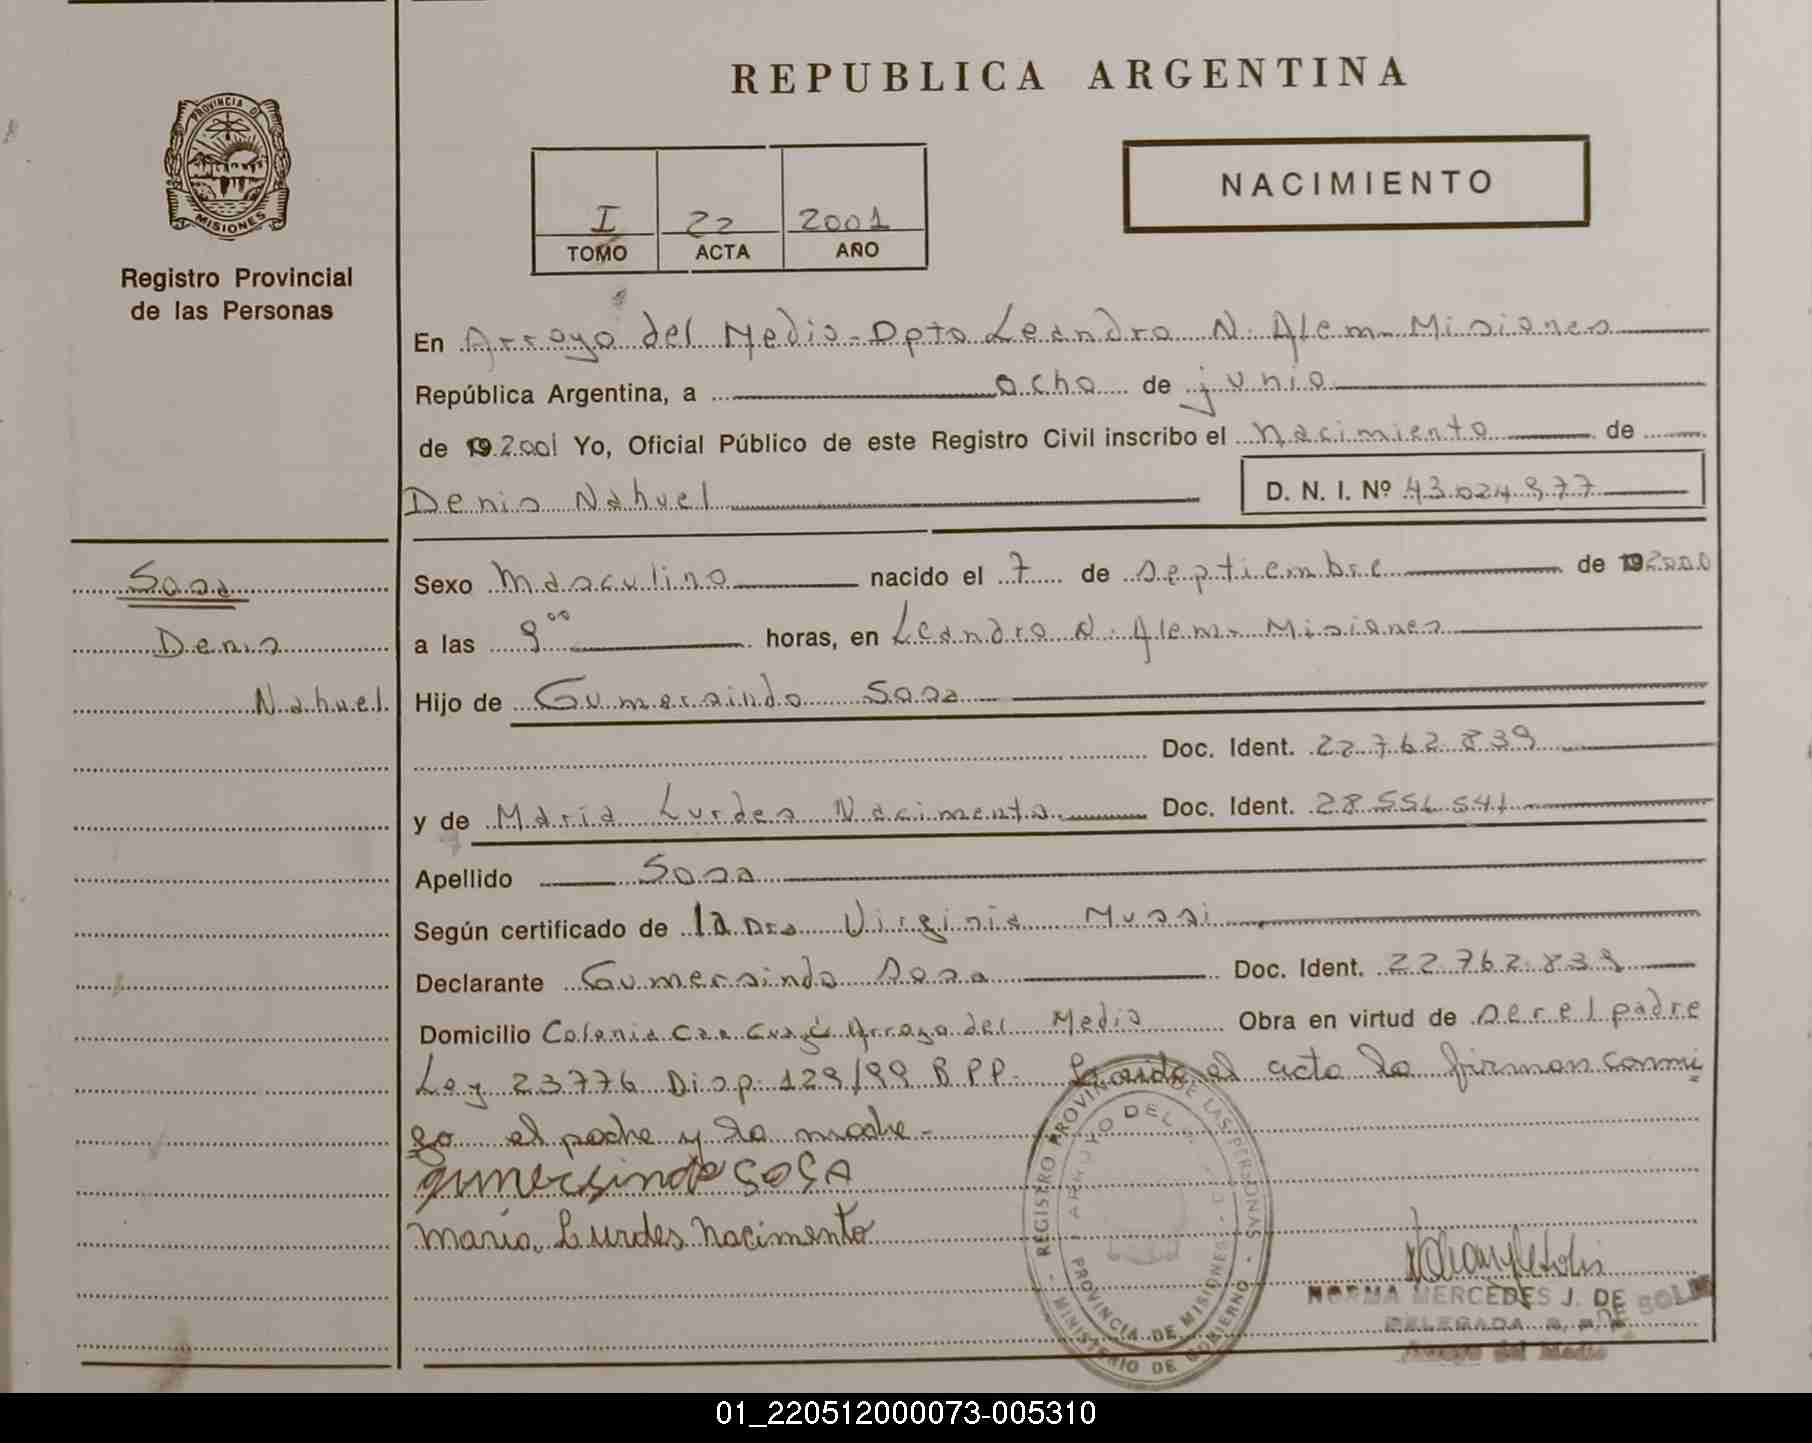 REPUBLICA ARGENTINA
PROVINCIA DE
MISIONES
Registro Provincial
de las Personas
NACIMIENTO
I 22 2001
TOMO ACTA AÑO
En Arroyo del Medio - Dpto Leandro N. Alem - Misiones
República Argentina, a ocho de junio
de 19 2001 Yo, Oficial Público de este Registro Civil inscribo el nacimiento de
Denis Nahuel D. N. I. Nº 43.024.977
Sosa
Denis
Nahuel
Sexo Masculino nacido el 7 de septiembre de 19 2000
a las 9 00 horas, en Leandro N. Alem - Misiones
Hijo de Gumersindo Sosa
Doc. Ident. 22.762.839
y de María Lurdes Nacimento Doc. Ident. 28.551.541
Apellido Sosa
Según certificado de la Dra Virginia Mussi
Declarante Gumersindo Sosa Doc. Ident. 22.762.839
Domicilio Colonia Caa Guazú Arroyo del Medio Obra en virtud de ser el padre
Ley 23776 Disp. 129/99 R P P. Leída el acta la firman conmi
go el padre y la madre.-
gumersindo SOSA
María Lurdes Nacimento
REGISTRO PROVINCIAL DE LAS PERSONAS
ARROYO DEL
PROVINCIA DE MISIONES
MINISTERIO DE GOBIERNO
NORMA MERCEDES J. DE SOLIS
DELEGADA R. P. P.
Arroyo del Medio
01_220512000073-005310